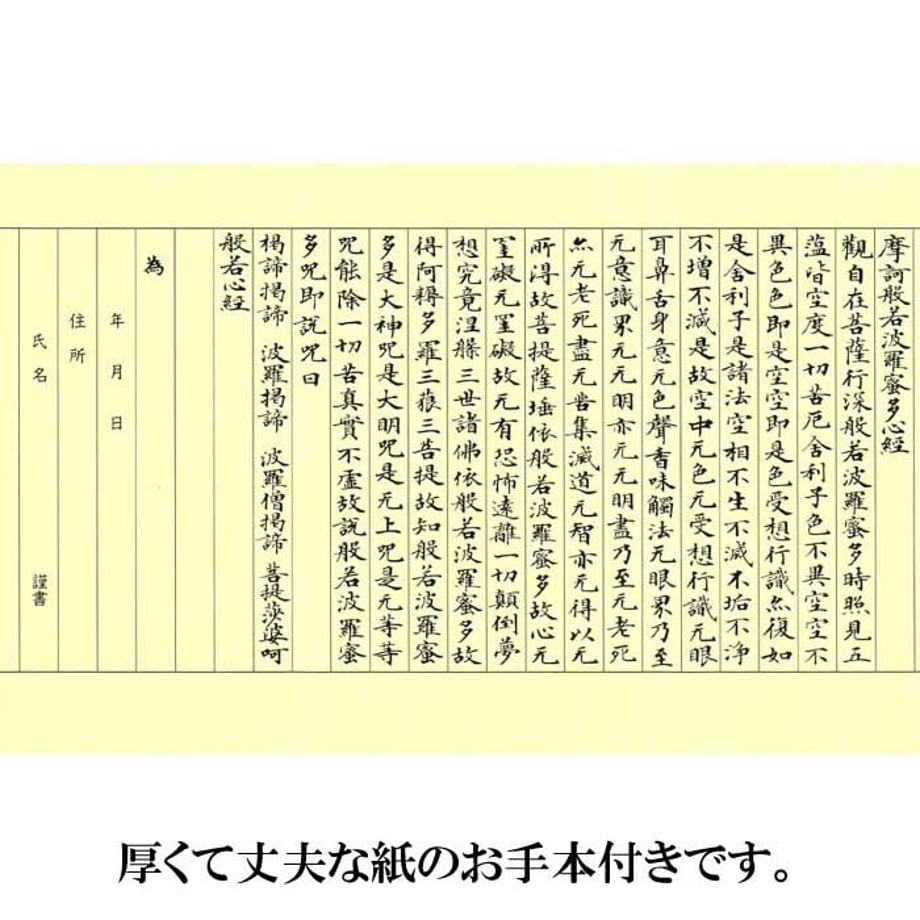 摩訶般若波羅蜜多心経
觀自在菩薩行深般若波羅蜜多時照見五
蘊皆空度一切苦厄舍利子色不異空空不
異色色即是空空即是色受想行識亦復如
是舍利子是諸法空相不生不滅不垢不浄
不増不減是故空中无色无受想行識无眼
耳鼻舌身意无色聲香味觸法无眼界乃至
无意識界无无明亦无无明盡乃至无老死
亦无老死盡无苦集滅道无智亦无得以无
所得故菩提薩埵依般若波羅蜜多故心无
罣礙无罣礙故无有恐怖遠離一切顛倒夢
想究竟涅槃三世諸佛依般若波羅蜜多故
得阿耨多羅三藐三菩提故知般若波羅蜜
多是大神呪是大明呪是无上呪是无等等
呪能除一切苦真實不虚故説般若波羅蜜
多呪即説呪曰
掲諦掲諦 波羅掲諦 波羅僧掲諦 菩提莎婆呵
般若心経
為
年 月 日
住所
氏名 謹書
厚くて丈夫な紙のお手本付きです。